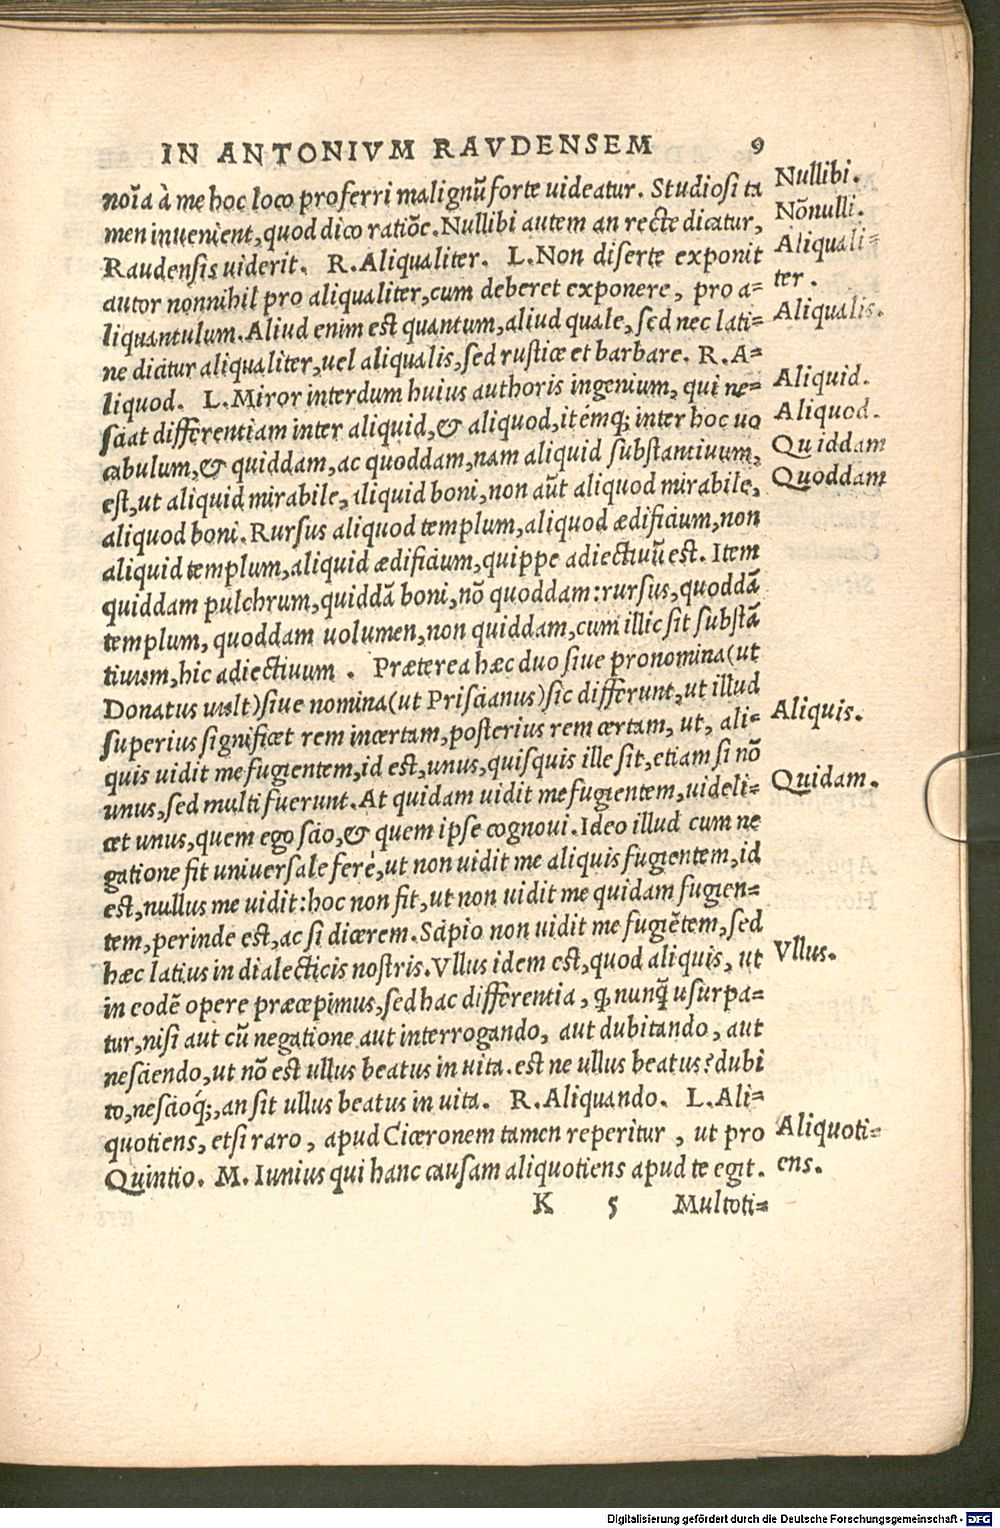 IN ANTONIVM RAVDENSEM 9
noĩa à me hoc loco proferri malignũ forte uideatur. Studiosi ta
men inuenient, quod dico ratiõe. Nullibi autem an recte dicatur,
Raudensis uiderit. R. Aliqualiter. L. Non diserte exponit
autor nonnihil pro aliqualiter, cum deberet exponere, pro a=
liquantulum. Aliud enim est quantum, aliud quale, sed nec lati=
ne dicitur aliqualiter, uel aliqualis, sed rusticæ et barbare. R. A=
liquod. L. Miror interdum huius authoris ingenium, qui ne=
sciat differentiam inter aliquid, & aliquod, itémq; inter hoc uo
cabulum, & quiddam, ac quoddam, nam aliquid substantiuum,
est, ut aliquid mirabile, aliquid boni, non aũt aliquod mirabile,
aliquod boni. Rursus aliquod templum, aliquod ædificium, non
aliquid templum, aliquid ædificium, quippe adiectiuũ est. Item
quiddam pulchrum, quiddã boni, nõ quoddam: rursus, quoddã
templum, quoddam uolumen, non quiddam, cum illic sit substã
tiuum, hic adiectiuum. Præterea hæc duo siue pronomina (ut
Donatus uult) siue nomina (ut Priscianus) sic differunt, ut illud
superius significet rem incertam, posterius rem certam, ut, ali=
quis uidit me fugientem, id est, unus, quisquis ille sit, etiam si nõ
unus, sed multi fuerunt. At quidam uidit me fugientem, uideli=
cet unus, quem ego scio, & quem ipse cognoui. Ideo illud cum ne
gatione fit uniuersale ferè, ut non uidit me aliquis fugientem, id
est, nullus me uidit: hoc non fit, ut non uidit me quidam fugien=
tem, perinde est, ac si dicerem. Scipio non uidit me fugiẽtem, sed
hæc latius in dialecticis nostris. Vllus idem est, quod aliquis, ut
in eodẽ opere præcepimus, sed hac differentia, q, nunq̃ usurpa=
tur, nisi aut cũ negatione aut interrogando, aut dubitando, aut
nesciendo, ut nõ est ullus beatus in uita. est ne ullus beatus? dubi
to, nescioq́;, an sit ullus beatus in uita. R. Aliquando. L. Ali=
quotiens, etsi raro, apud Ciceronem tamen reperitur, ut pro
Quintio. M. Iunius qui hanc causam aliquotiens apud te egit.
K 5 Multoti=
Nullibi.
Nõnulli.
Aliquali=
ter.
Aliqualis.
Aliquid.
Aliquod.
Quiddam
Quoddam
Aliquis.
Quidam.
Vllus.
Aliquoti=
ens.
Digitalisierung gefördert durch die Deutsche Forschungsgemeinschaft - DFG